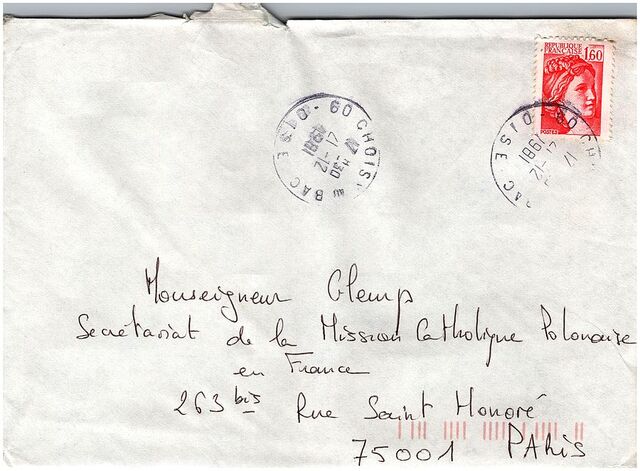 RÉPUBLIQUE
FRANÇAISE
1,60
POSTES
60 CHOISY AU BAC OISE
17 H 30
21-12
1981
Monseigneur Glemp
Secrétariat de la Mission Catholique Polonaise
en France
263 bis Rue Saint Honoré
75001 PARIS